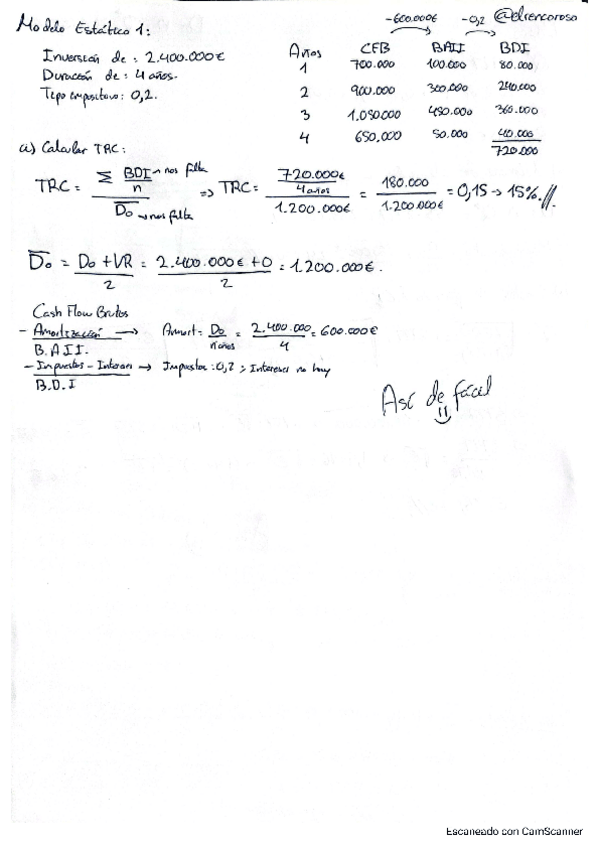 -600.000€ -0,2 @elrencoroso
Modelo Estático 1:
Inversión de: 2.400.000€
Duración de: 4 años.
Tipo impositivo: 0,2.
Años CFB BAII BDI
1 700.000 100.000 80.000
2 900.000 300.000 240.000
3 1.050.000 450.000 360.000
4 650.000 50.000 40.000
720.000
a) Calcular TRC:
TRC = Σ BDI/n → nos falta / D̅o → nos falta => TRC = 720.000€/4 años / 1.200.000€ = 180.000 / 1.200.000€ = 0,15 → 15%.//
D̅o = Do + VR / 2 = 2.400.000€ + 0 / 2 = 1.200.000€.
Cash Flow Brutos
- Amortización → Amort = Do / nºaños = 2.400.000 / 4 = 600.000€
B.A.I.I.
- Impuestos - Interes → Impuestos: 0,2 ; Intereses no hay
B.D.I
Así de fácil
Escaneado con CamScanner